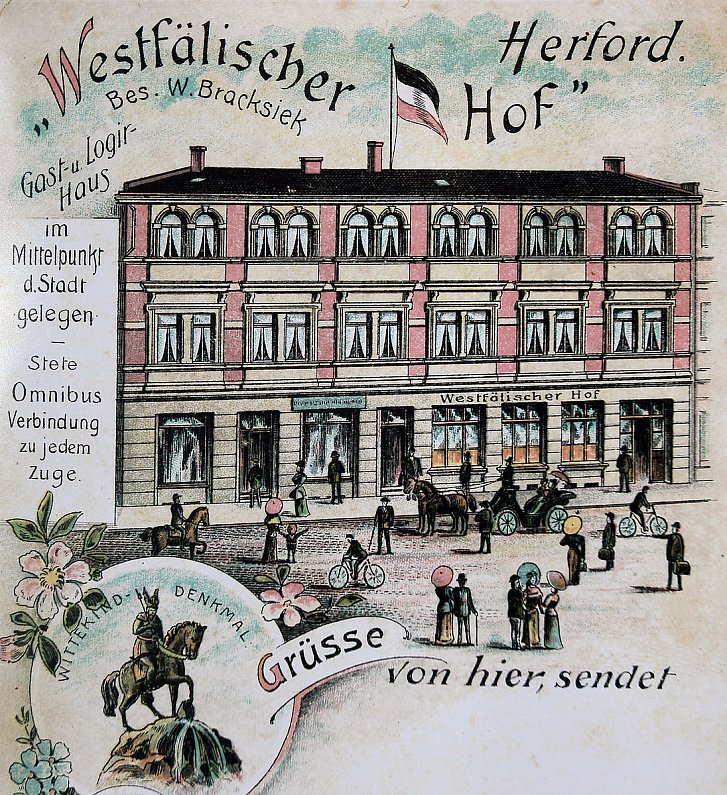 Herford.
„Westfälischer Hof”
Bes. W. Bracksiek
Gast- u. Logir-
Haus
im
Mittelpunkt
d. Stadt
gelegen
—
Stete
Omnibus
Verbindung
zu jedem
Zuge.
Westfälischer Hof
WITTEKIND-DENKMAL.
Grüsse von hier, sendet